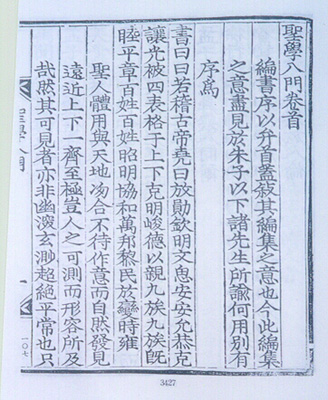 聖學入門卷首
編書序以弁首蓋叙其編集之意也今此編集
之意盡見於朱子以下諸先生所論何用別有
序爲
書曰曰若稽古帝堯曰放勳欽明文思安安允恭克
讓光被四表格于上下克明峻德以親九族九族旣
睦平章百姓百姓昭明協和萬邦黎民於變時雍
聖人體用與天地沕合不待作意而自然發見
遠近上下一齊至極豈人之可測而形容所及
哉然其可見者亦非幽深玄渺超絕平常也只
聖學入門
一
一〇七
3427